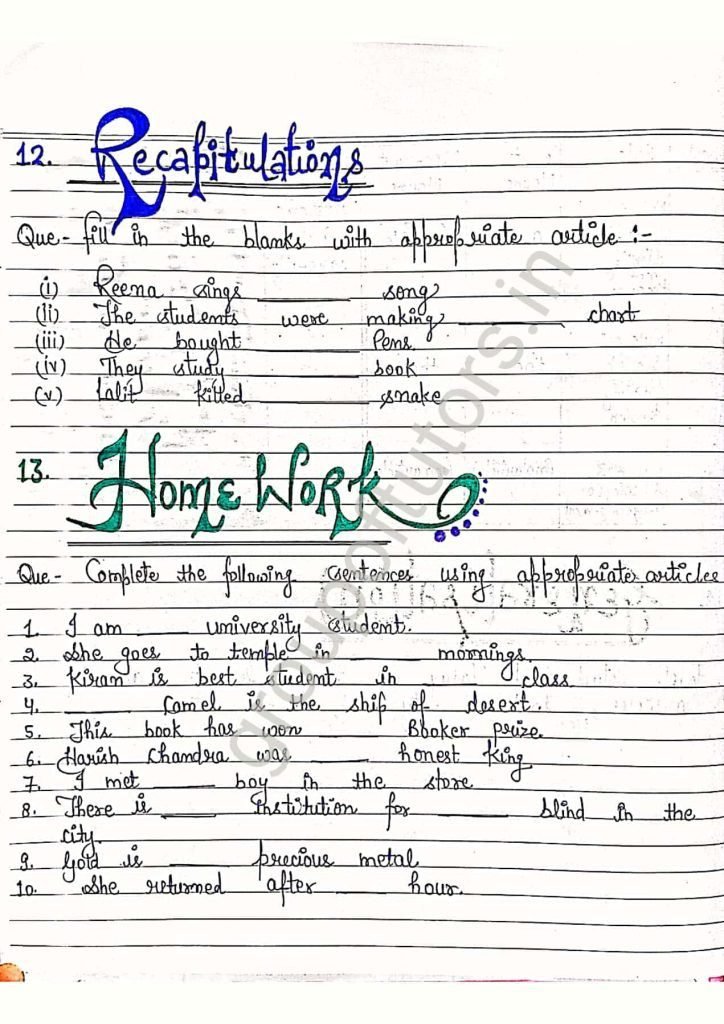 12. Recapitulations
Que- Fill in the blanks with appropriate article :-
(i) Reena sings ______ song
(ii) The students were making ______ chart
(iii) He bought ______ Pens
(iv) They study ______ book
(v) Lalit killed ______ snake
13. Home Work
Que- Complete the following sentences using appropriate articles
1. I am ____ university student.
2. She goes to temple in ____ mornings.
3. Kiran is best student in ____ class
4. ____ Camel is the ship of desert.
5. This book has won ____ Booker prize
6. Harish Chandra was ____ honest King
7. I met ____ boy in the store
8. There is ____ institution for ____ blind in the
city.
9. Gold is ____ precious metal
10. She returned after ____ hour.
groupoftutors.in